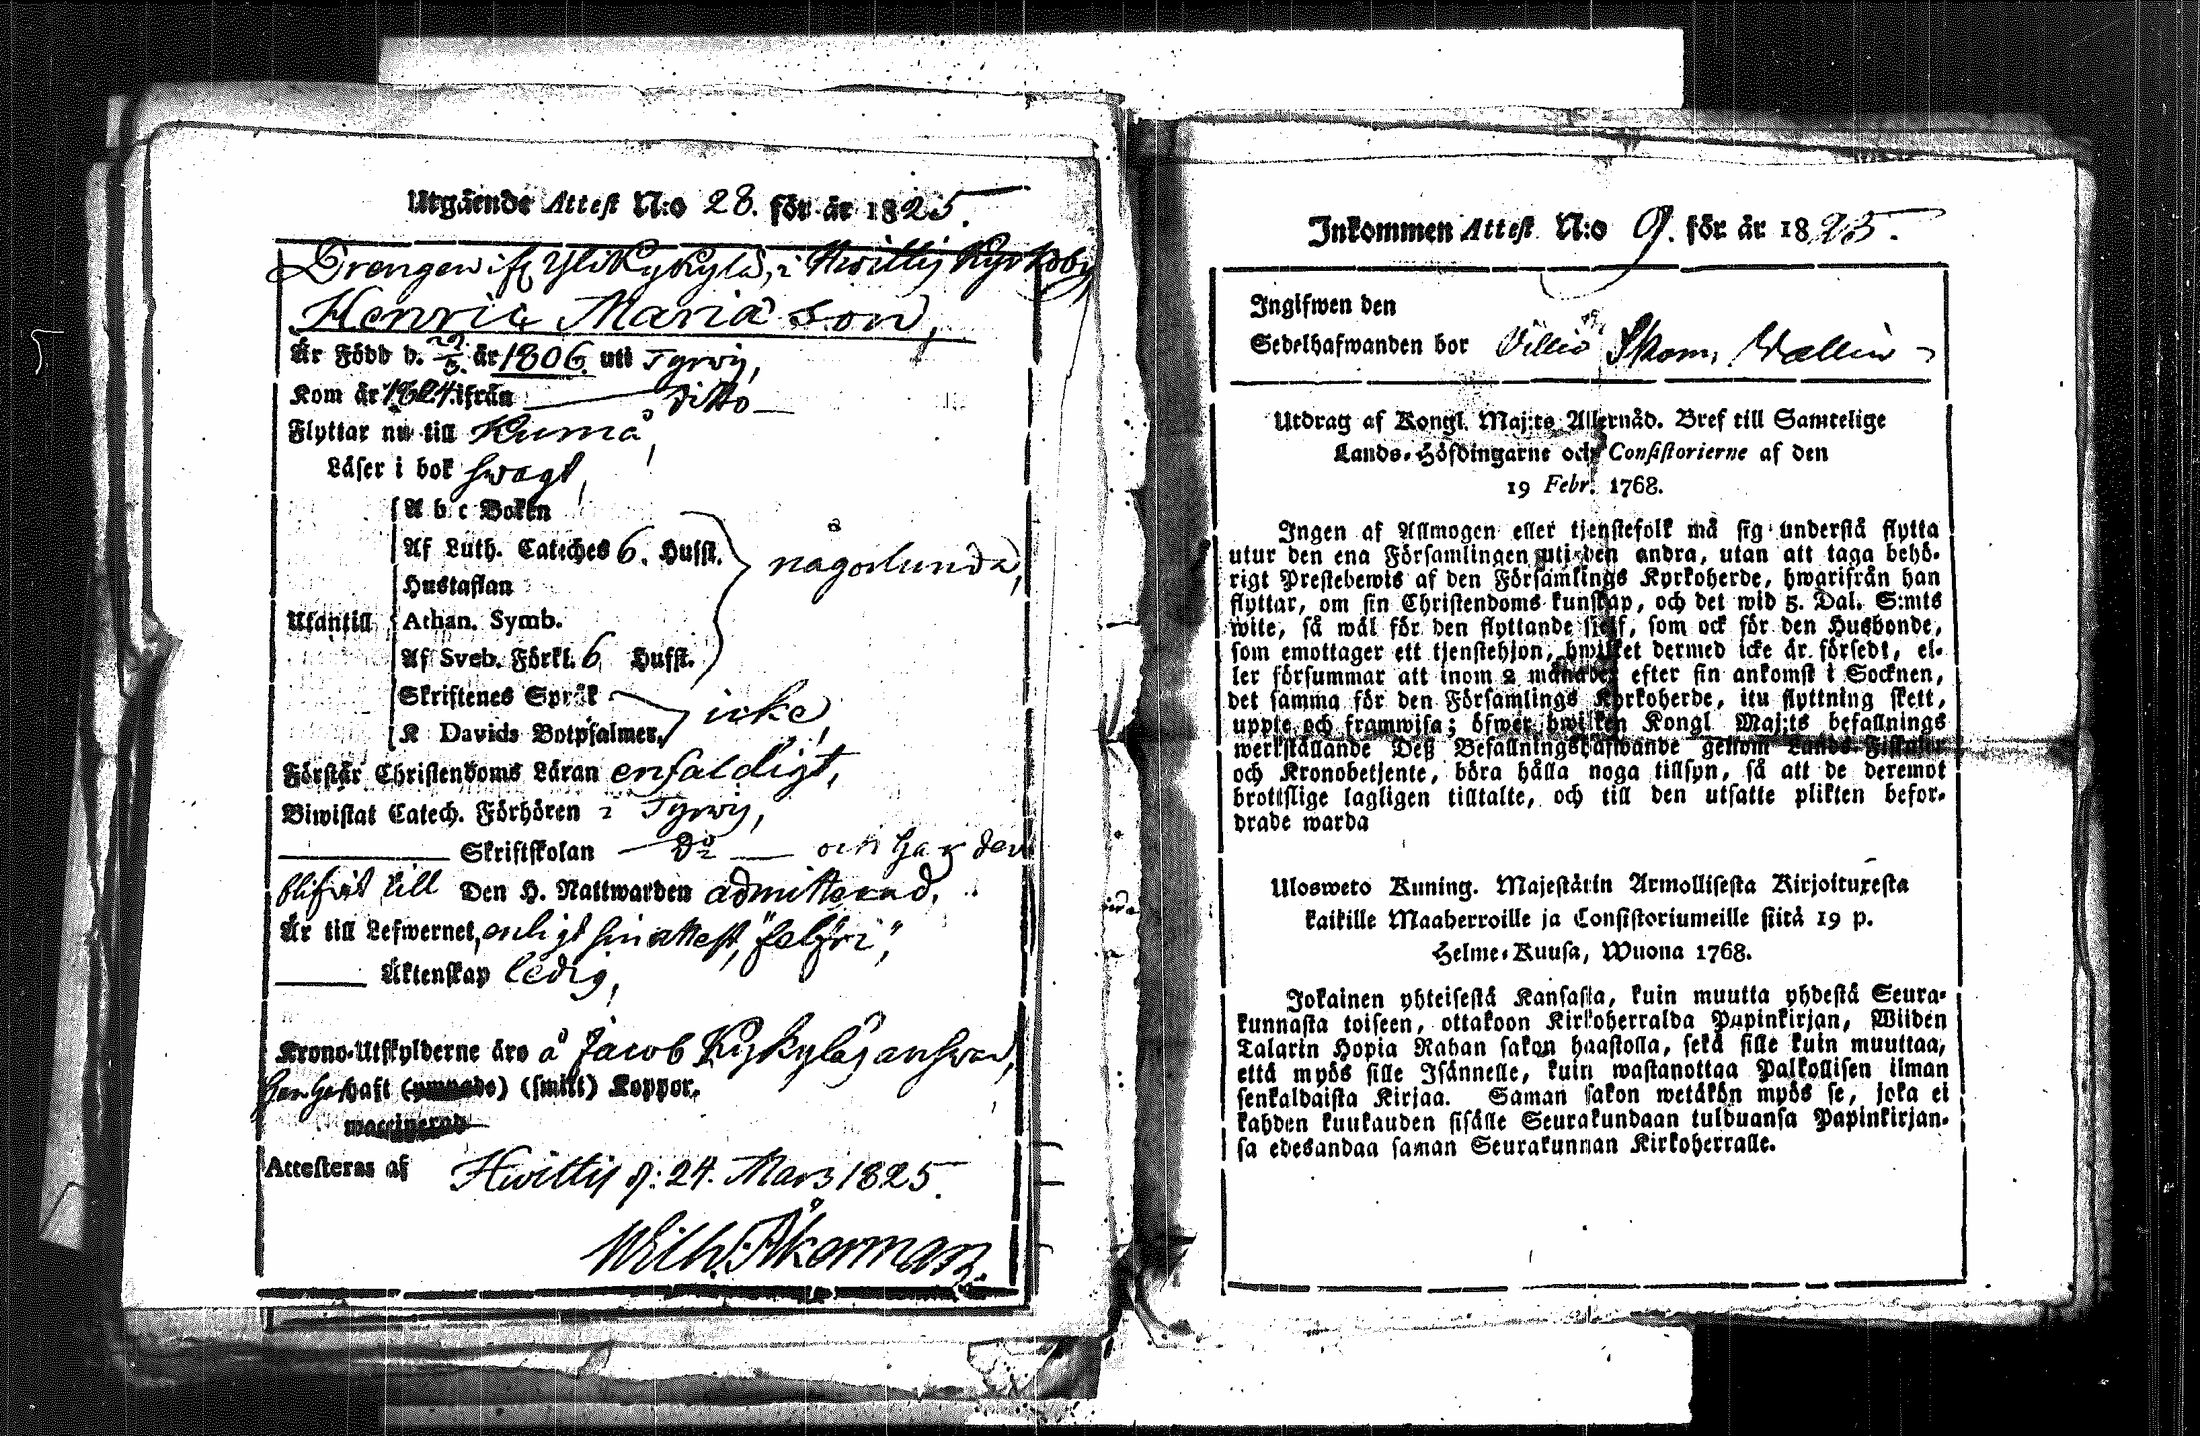 Utgående Attest N:o 28. för år 1825.
Drengen ifr. Ylikykylä, i Hwittis Kyrkoby,
Henric Mariæ son,
Är Född d. 29/5. år 1806 uti Tyrwis,
Kom år 1824 ifrån ditto
Flyttar nu till Kumå,
Läser i bok swagt,
A b c Boken
Af Luth. Cateches 6. Hufst.
någorlunda,
Hustaflan
Utantill
Athan. Symb.
Af Sveb. Förkl. 6 Hufst.
Skriftenes Språk
icke,
K Davids Botpsalmer,
Förstår Christendoms Läran enfaldigt,
Biwistat Catech. Förhören i Tyrwis,
Skriftskolan Do och har der
blifvit till Den H. Nattwarden admitterad.
Är till Lefwernet, enligt sin attest, "felfri",
Äktenskap ledig,
Krono-Utskylderne äro å Jacob Kykyläs answar,
haft (ympade) (smitt) Koppor.
vaccinerad
Attesteras af Hwittis d: 24. Mars 1825.
Wilh. Åkerman.
Inkommen Attest N:o 9. för år 1825.
Ingifwen den
Sedelhafwanden bor Villiö Skom. Wallin
Utdrag af Kongl. Maj:ts Allernåd. Bref till Samtelige
Lands-Höfdingarne och Consistorierne af den
19 Febr. 1768.
Ingen af Allmogen eller tjenstefolk må sig understå flytta
utur den ena Församlingen uti den andra, utan att taga behö-
rigt Prestebewis af den Församlings Kyrkoherde, hwarifrån han
flyttar, om sin Christendoms kunskap, och det wid 5. Dal. S:mts
wite, så wäl för den flyttande sjelf, som ock för den Husbonde,
som emottager ett tjenstehjon, hwilket dermed icke är försedt, el-
ler försummar att inom 2 månader efter sin ankomst i Socknen,
det samma för den Församlings Kyrkoherde, itu flyttning skett,
uppte och framwisa; öfwer hwilken Kongl Maj:ts befallnings
werkställande Deß Befallningshafwande genom Lands-Fiskaler
och Kronobetjente, böra hålla noga tillsyn, så att de deremot
brottslige lagligen tilltalte, och till den utsatte plikten befor-
drade warda
Ulosweto Kuning. Majestätin Armollisesta Kirjoituxesta
kaikille Maaherroille ja Consistoriumeille siitä 19 p.
Helme-Kuusa, Wuona 1768.
Jokainen yhteisestä Kansasta, kuin muutta yhdestä Seura-
kunnasta toiseen, ottakoon Kirkoherralda Papinkirjan, Wiiden
Talarin Hopia Rahan sakon haastolla, sekä sille kuin muuttaa,
että myös sille Isännelle, kuin wastanottaa Palkollisen ilman
senkaldaista Kirjaa. Saman sakon wetäkön myös se, joka ei
kahden kuukauden sisälle Seurakundaan tulduansa Papinkirjan-
sa edesandaa saman Seurakunnan Kirkoherralle.